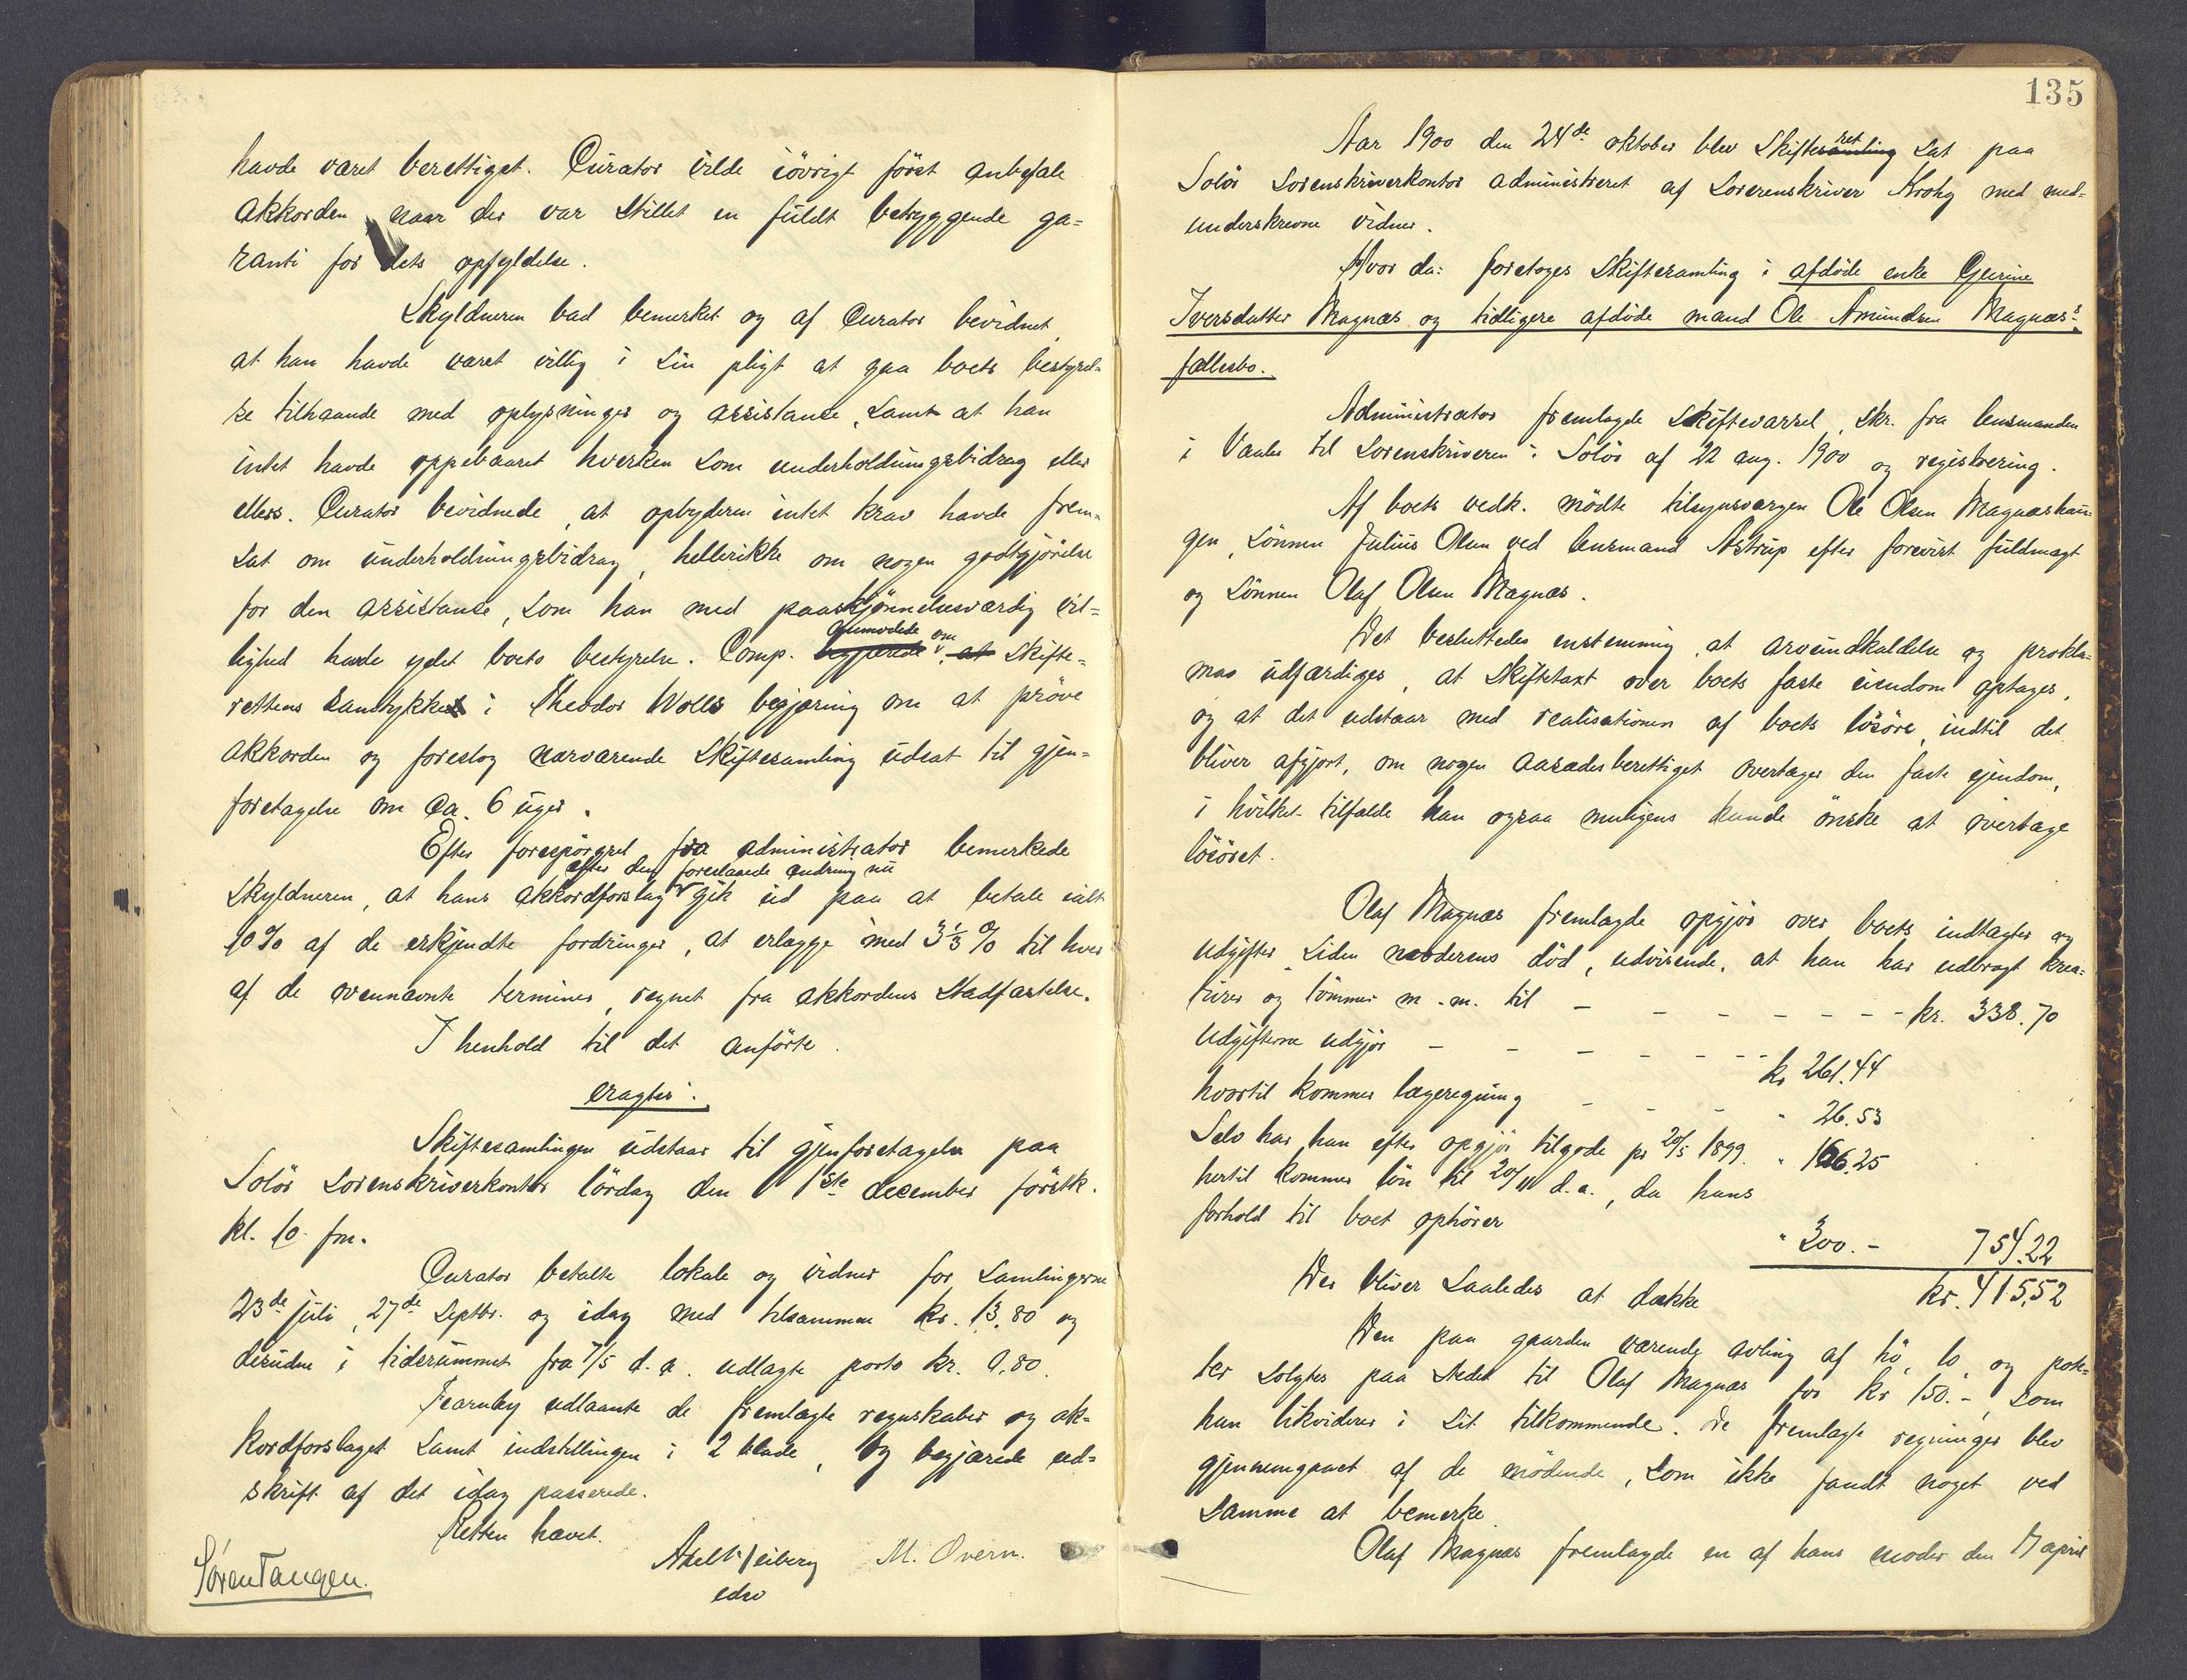 havde været berettiget. Curator vilde iøvrigt først anbefale
akkorden naar der var stillet en fuldt betryggende ga=
ranti for dets opfyldelse.
Skyldneren bad bemerket og af Curator bevidnet
at han havde været villig i sin pligt at gaa boets bestyrel-
se tilhaande med oplysninger og assistanse, samt at han
intet havde oppebaaret hverken som underholdningsbidrag eller
ellers. Curator bevidnede, at opbyderen intet krav havde frem-
sat om underholdningsbidrag, hellerikke om nogen godtgjørelse
for den assistanse, som han med paaskjønnelsesværdig vil=
lighed havde ydet boets bestyrelse. Comp. anmodede om Skifte=
rettens samtykke i Theodor Wolls begjæring om at prøve
akkorden og foreslog nærværende Skiftesamling udsat til gjen=
foretagelse om ca. 6 uger.
Efter forespørgsel fra administrator bemerkede
efter den foreslaaede ændring nu
Skyldneren, at hans akkordforslag gik ud paa at betale ialt
10% af de erkjendte fordringer, at erlægge med 3 1/3 % til hver
af de ovennævnte terminer, regnet fra akkordens stadfæstelse.
I henhold til det anførte
eragtes:
Skiftesamlingen udstaar til gjenforetagelse paa
Solør Sorenskriverkontor lørdag den 1ste december førstk.
kl. 10 fm.
Curator betalte lokale og vidner for samlingerne
23de juli, 27de Septbr. og idag med tilsammen kr. 13.80 og
desuden i tidsrummet fra 7/5 d.a. udlagte porto kr. 9.80.
Fearnley udlaante de fremlagte regnskaber og ak=
kordforslaget samt indstillingen i 2 blade, og begjærede ud=
skrift af det idag passerede.
Retten hævet.
Søren Tangen. M. Overn.
135
Aar 1900 den 24de oktober blev Skifteret sat paa
Solør Sorenskriverkontor administreret af Sorenskriver Krohg med med=
underskrevne vidner.
Hvor da: foretoges Skiftesamling i afdøde enke Gjerine
Iversdatter Magnæs og tidligere afdøde mand Ole Amundsen Magnæs's
fællesbo.
Administrator fremlagde Skiftevarsel, skr. fra lensmanden
i Vaaler til Sorenskriveren i Solør af 22 aug. 1900 og registrering.
Af boets vedk. mødte tilsynsværgen Ole Olsen Magnæshau-
gen, sønnen Julius Olsen ved lensmand Astrup efter forevist fuldmagt
og sønnen Olaf Olsen Magnæs.
Det besluttedes enstemmig, at arveindkaldelse og prokla=
mas udfærdiges, at Skiftetaxt over boets faste eiendom optages,
og at det udstaar med realisationen af boets løsøre, indtil det
bliver afgjort, om nogen aasædesberettiget overtager den faste ejendom,
i hvilket tilfælde han ogsaa muligens kunde ønske at overtage
løsøret.
Olaf Magnæs fremlagde opgjør over boets indtægter og
udgifter siden moderens død, udvisende, at han har udbragt krea=
turer og tømmer m.m. til - - - - - - - kr. 338.70
Udgifterne udgjør - - - - - - - kr 261.44
hvortil kommer lægeregning - - - " 26.53
Selv har han efter opgjør tilgode pr 20/5 1899. " 166.25
hertil kommer løn til 20/11 d.a., da hans
forhold til boet ophører " 300.- 754.22
Der bliver saaledes at dække kr. 415.52
Den paa gaarden værende avling af hø, lo og pote=
ter solgtes paa stedet til Olaf Magnæs for kr 150.-, som
han likviderer i sit tilkommende. De fremlagte regninger blev
gjennemgaaet af de mødende, som ikke fandt noget ved
samme at bemerke.
Olaf Magnæs fremlagde en af hans moder den 17 april